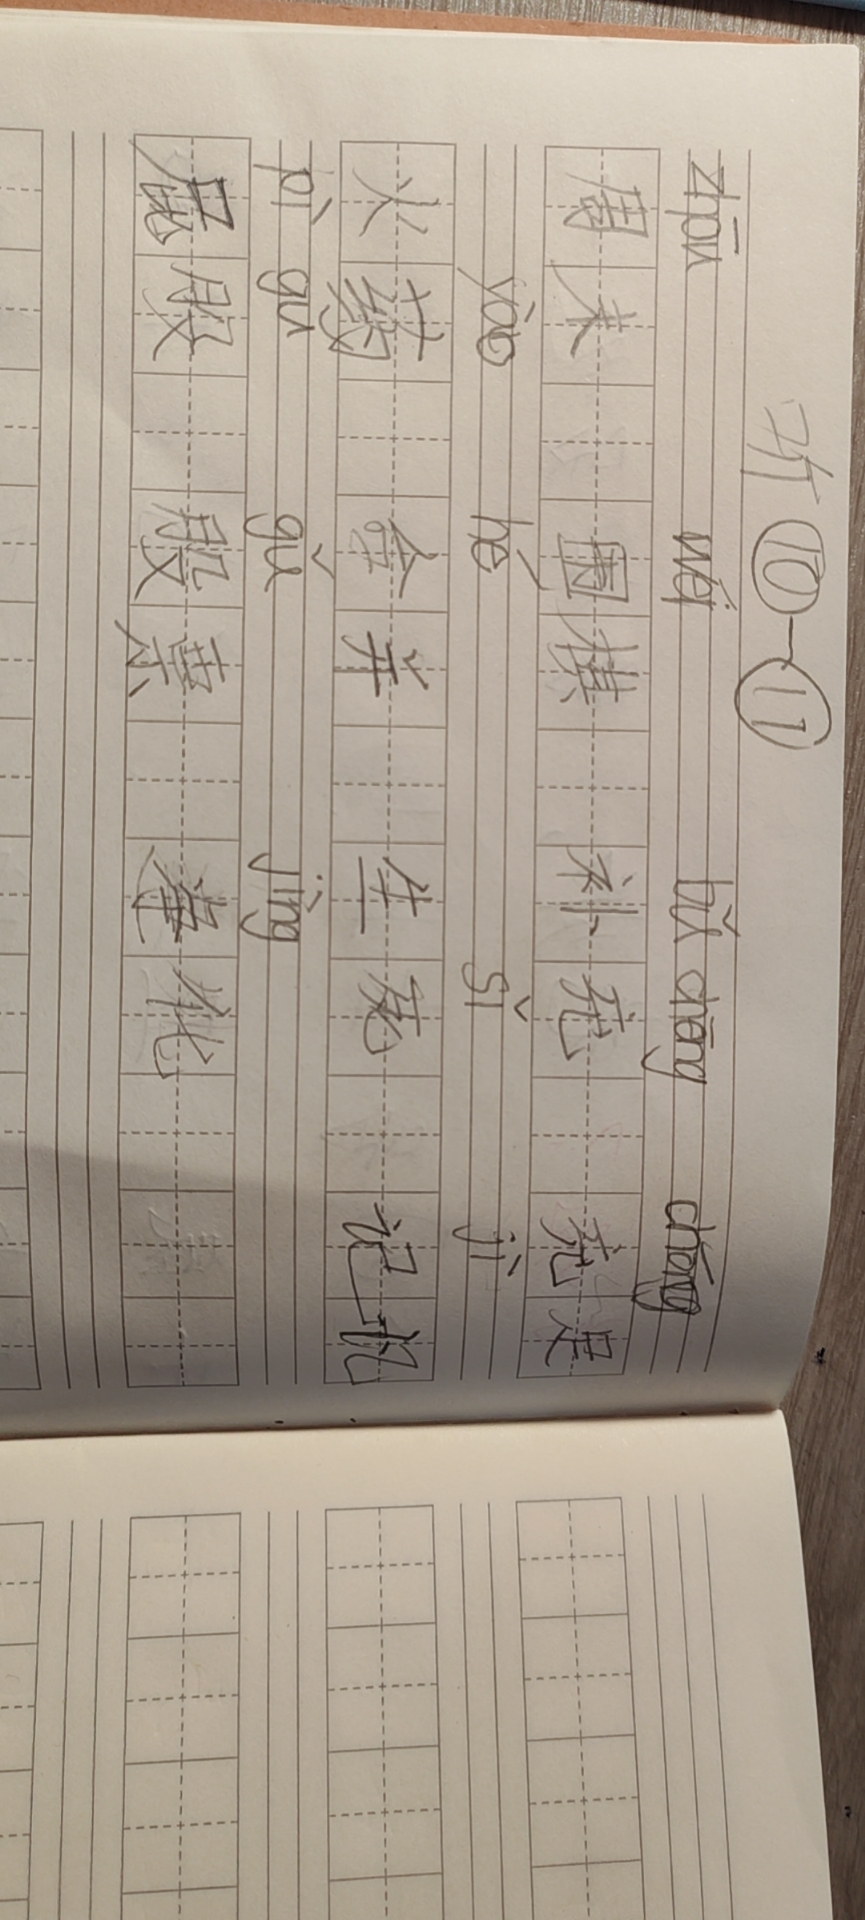 听⑩—⑪
zhōu wéi bǔ chōng chōng
周末 围棋 补充 充足
yào hé sǐ jì
火药 合并 生死 记忆
pì gu gǔ jìng
屁股 股票 净化